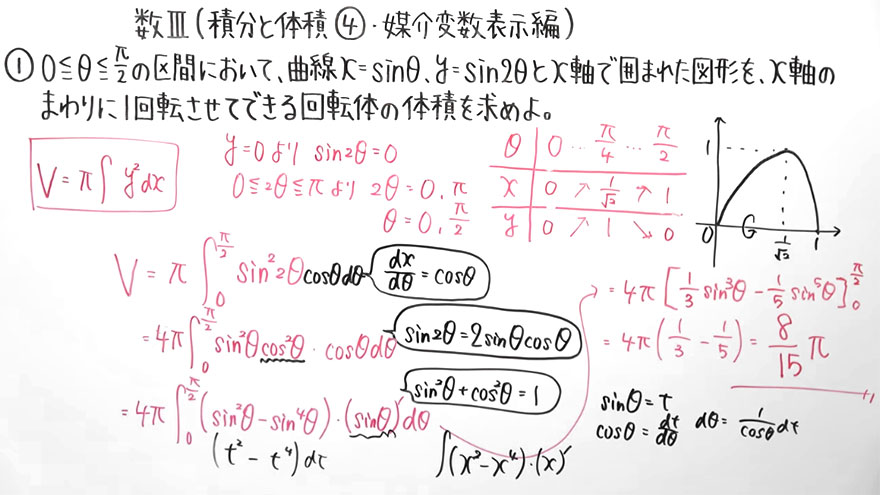 数Ⅲ(積分と体積④・媒介変数表示編)
① 0≦θ≦π/2の区間において、曲線x=sinθ、y=sin2θとx軸で囲まれた図形を、x軸の
まわりに1回転させてできる回転体の体積を求めよ。
V=π∫y²dx
y=0より sin2θ=0
0≦2θ≦πより 2θ=0,π
θ=0,π/2
θ 0 … π/4 … π/2
x 0 ↗ 1/√2 ↗ 1
y 0 ↗ 1 ↘ 0
1
0 1/√2 1
V=π∫₀^(π/2) sin²2θcosθdθ
dx/dθ=cosθ
=4π∫₀^(π/2) sin²θcos²θ・cosθdθ
sin2θ=2sinθcosθ
=4π∫₀^(π/2) (sin²θ-sin⁴θ)・(sinθ)'dθ
sin²θ+cos²θ=1
(t²-t⁴)dt
∫(x²-x⁴)・(x)'
=4π[1/3 sin³θ-1/5 sin⁵θ]₀^(π/2)
=4π(1/3-1/5)=8/15 π
sinθ=t
cosθ=dt/dθ dθ=1/cosθ dt